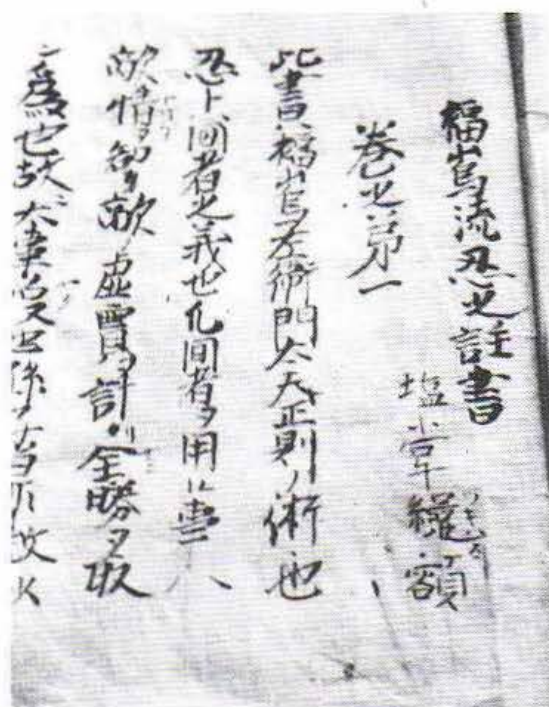 福嶌流忍之註書
塩當纏額
巻之第一
此書ハ福嶌左衛門太夫正則ノ術也
忍ト間者之義也凡間者ヲ用ル事ハ
敵情ヲ知リ敵ノ虚實ヲ計リ全勝ヲ取
ン爲也故ニ